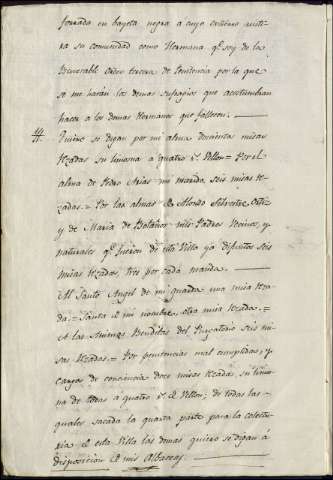 forrado en bayeta negra a cuyo entierro asisti-
ra su comunidad como Hermana q.e soy de la
Venerable Orden tercera de Penitencia por la que
se me harán los demas sufragios que acostumbran
hacer a los demas Hermanos que fallecen.
Quiero se digan por mi alma doscientas misas
rezadas su limosna a quatro r.s Vellon = Por el
alma de Pedro Arias mi marido, seis misas re-
zadas. = Por las almas de Alonso Silvestre Ortiz
y de Maria de Bolaños mis Padres vecinos, y
naturales q.e fueron de esta Villa ya difuntos seis
misas rezadas, tres por cada
Al Santo Angel de mi guarda una misa reza-
da. = Santa de mi nombre, otra misa rezada. =
A las Animas Benditas del Purgatorio seis mi-
sas rezadas. = Por penitencias mal cumplidas, y
cargos de conciencia doce misas rezadas, su limos-
na de todas a quatro r.s de Vellon; de todas las
quales sacada la quarta parte para la colectu-
ria de esta Villa las demas quiero se digan á
disposicion de mis Albaceas.